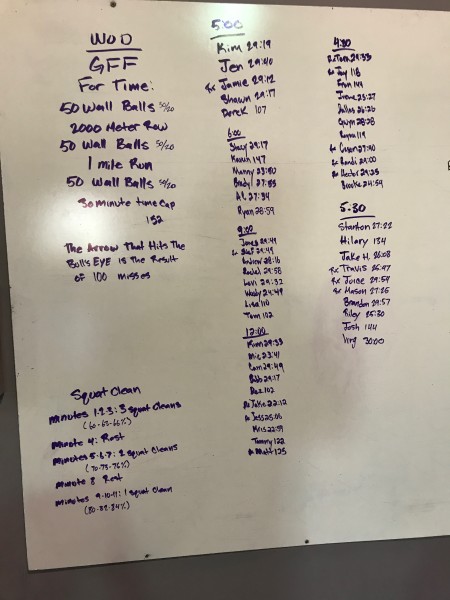 WOD
GFF
For Time:
50 Wall Balls 30/20
2000 Meter Row
50 Wall Balls 30/20
1 mile Run
50 Wall Balls 30/20
30 minute time Cap
152
The Arrow That Hits The
Bull's EYE is The Result
of 100 misses
Squat Clean
minutes 1-2-3: 3 squat Cleans
(60-63-66%)
minute 4: Rest
minutes 5-6-7: 2 squat Cleans
(70-73-76%)
minute 8 Rest
minutes 9-10-11: 1 squat Clean
(80-82-84%)
5:00
Kim 29:19
Jen 29:40
Rx Jamie 29:12
Shawn 29:17
Derek 107
6:00
Stacy 29:17
147
Manny 23:80
Brady 27:55
Al 27:34
Ryan 28:59
9:00
Jones 29:49
Andrew 28:16
Rachel 29:58
Levi 29:32
Wendy 29:49
Lisa 110
Tom 102
12:00
Kim 29:33
Mic 23:41
Cam 29:49
Bob 29:17
102
Rx Jake 22:12
Rx Jess 25:06
Kris 22:59
Tammy 122
Rx Matt 125
4:30
Rx Tom 29:33
Rx Jay 118
Fran 144
Irene 25:27
Dallas 26:26
Gwyn 28:28
119
Rx Carson 27:40
Rx Randi 29:00
Rx Hector 29:25
Brooke 24:54
5:30
Stanton 27:22
Hilary 134
Jake H. 26:08
Rx Travis 26:47
Rx Joice 29:54
Rx Mason 27:26
Brandon 29:57
Riley 25:30
Josh 144
Jing 30:00